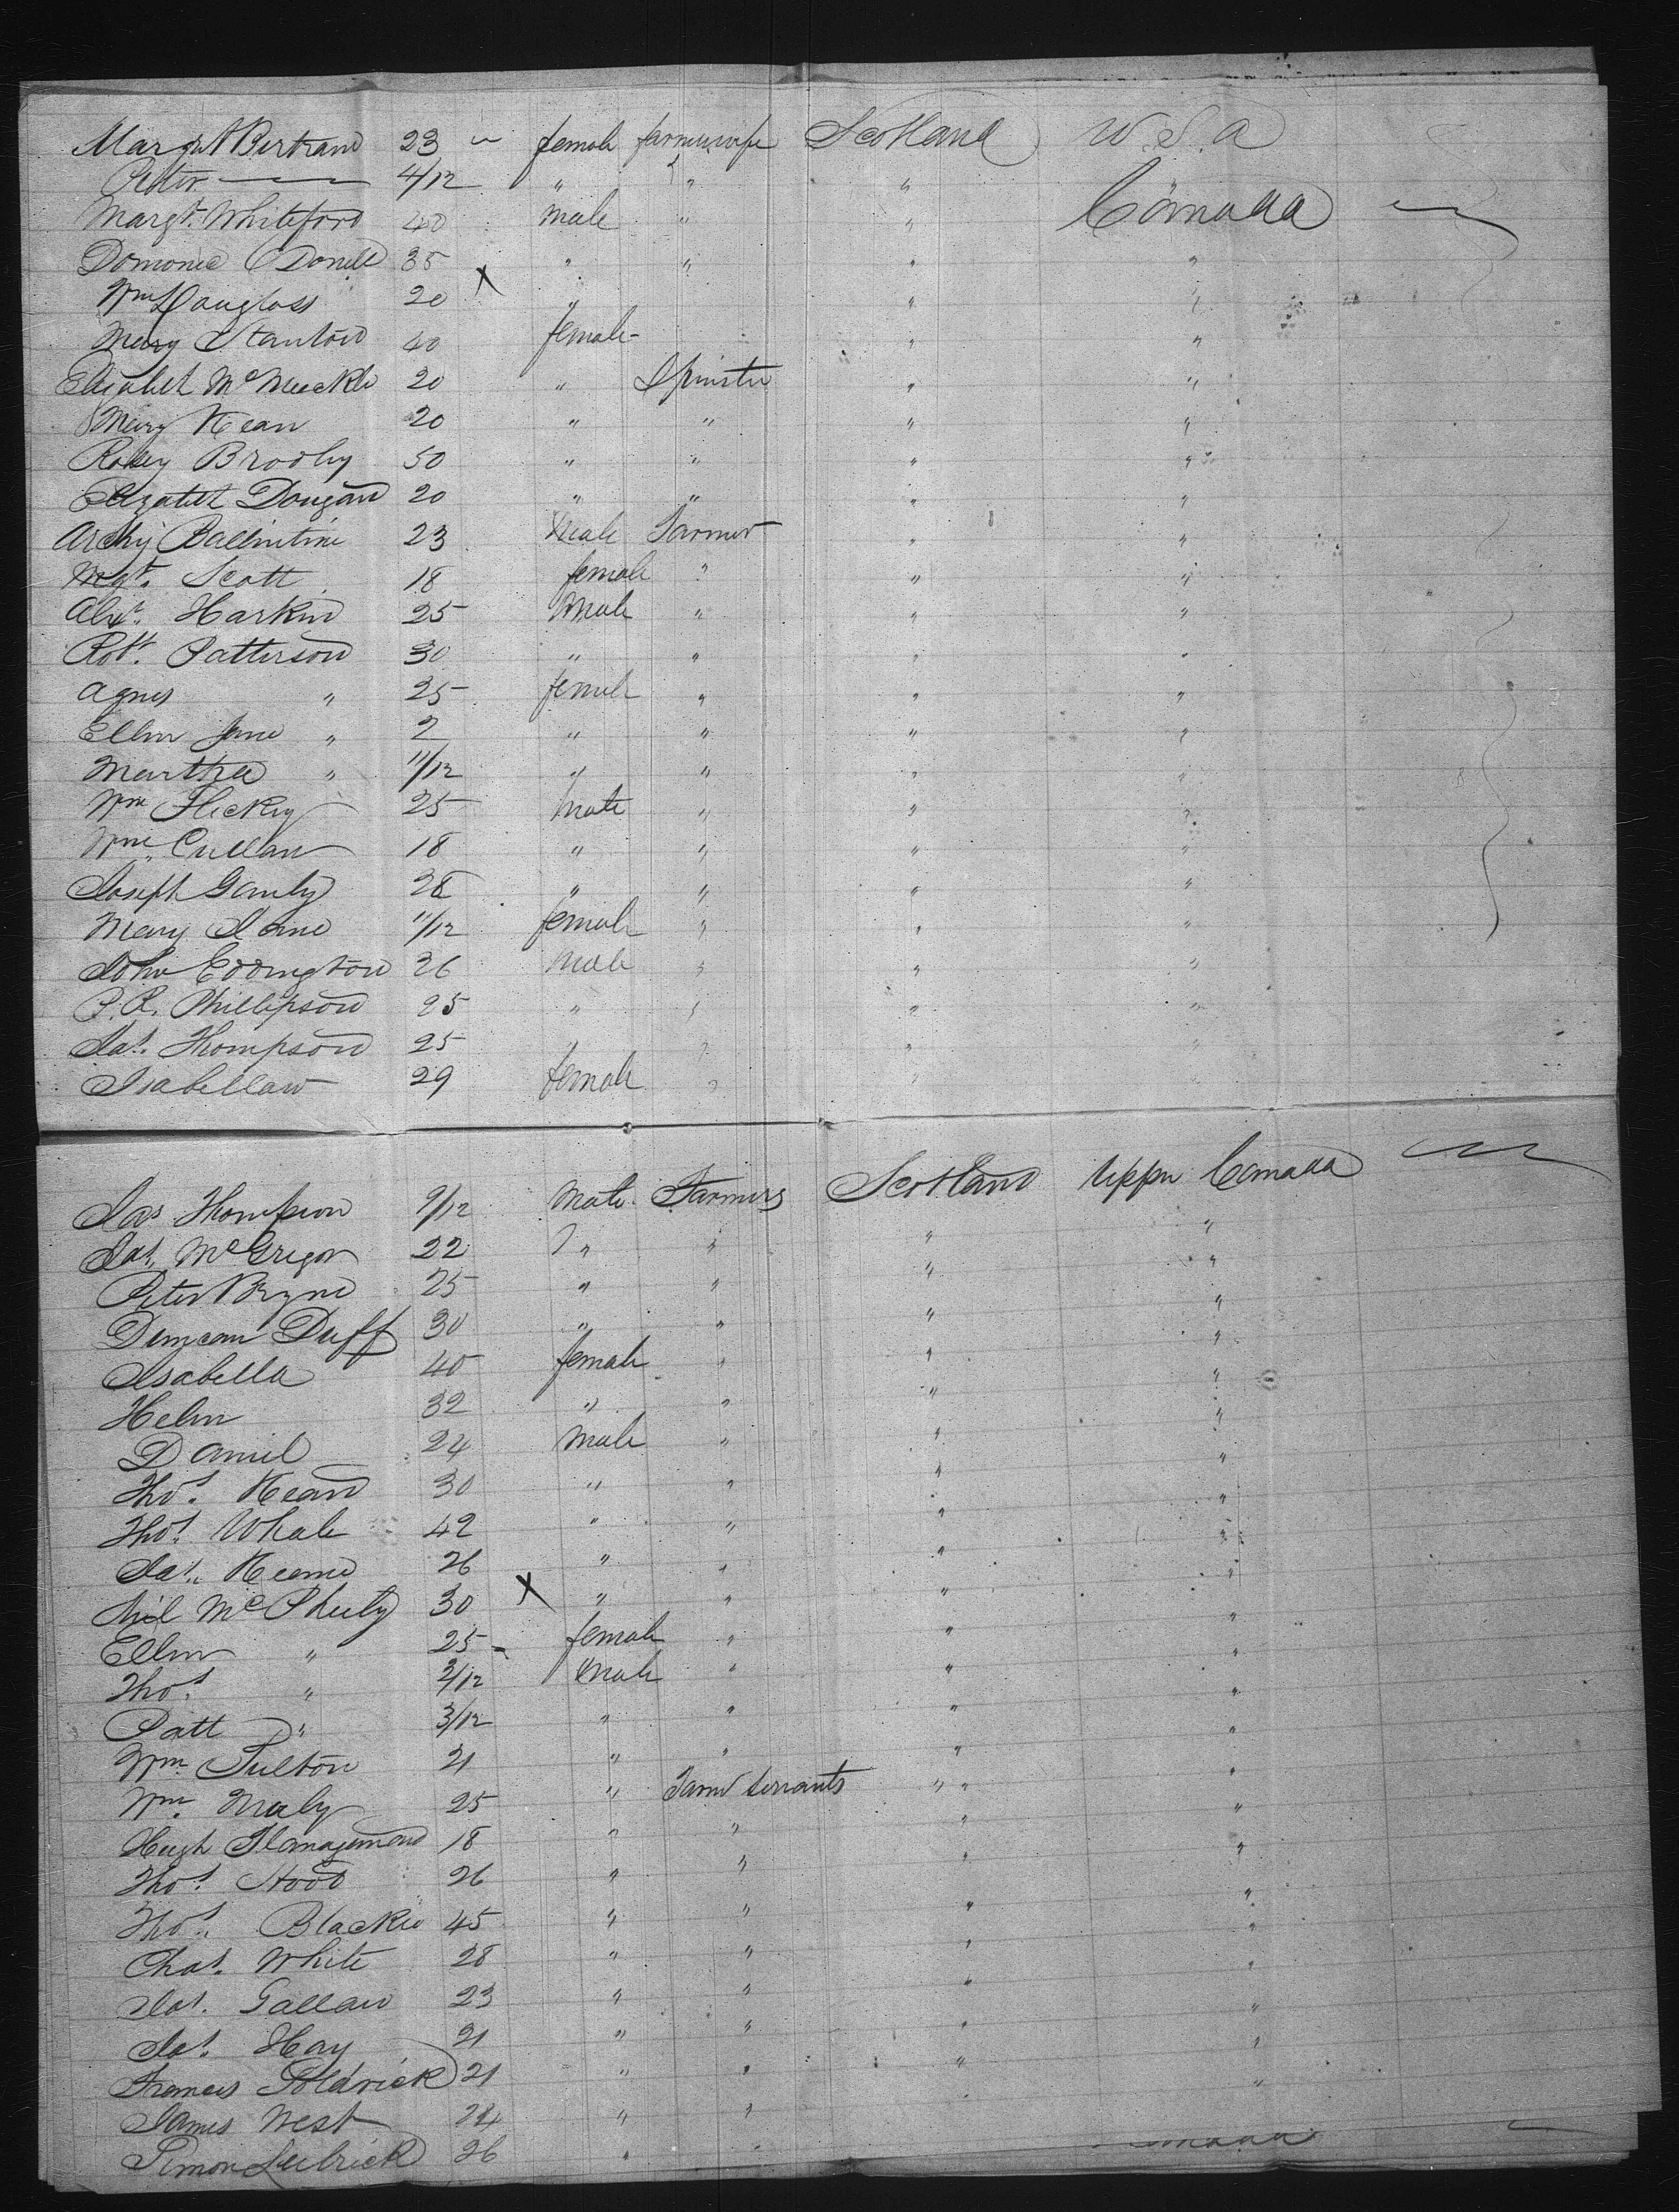 Margt Bertrand 23 female farmerwife Scotland U.S.a
Peter — 4/12 " " " Canada
Margt. Whiteford 40 male " "
Domonic ODonell 35 " " " "
Wm Douglass 20 X " " "
Mary Stanton 40 female " "
Elizabeth McMeekle 20 " Spinster " "
Mary Kean 20 " " " "
Rosey Brodly 50 " " " "
Elizabeth Dougan 20 " " " "
Archy Ballintine 23 Male Farmer " "
Mgt. Scott 18 female " " "
Alxr. Harkin 25 Male " " "
Robt. Patterson 30 " " " "
Agnes " 25 female " " "
Ellen Jane " 2 " " " "
Martha " 11/12 " " " "
Wm Hickey 25 Male " " "
Wm Cullan 18 " " " "
Joseph Ganly 28 " " " "
Mary Jane 11/12 female " " "
John Eddington 26 Male " " "
P.R. Phillipson 25 " " " "
Jas. Thompson 25 " " " "
Isabella 29 female " " "
Jas Thompson 9/12 Male Farmers Scotland Upper Canada
Jas. McGregor 22 " " " "
Peter Bryne 25 " " " "
Duncan Duff 30 " " " "
Isabella 40 female " " "
Helen 32 " " " "
Daniel 24 Male " " "
Thos. Kean 30 " " " "
Thos. Whale 42 " " " "
Jas. Keane 26 " " " "
McPheely 30 X " " " "
Ellen " 25 female " " "
Thos. " 3/12 male " " "
Patt " 3/12 " " " "
Wm. Fulton 21 " " " "
Wm. Maly 25 " Farm Servants " " "
Hugh 18 " " " "
Thos. Hood 26 " " " "
Thos. Blackie 45 " " " "
Chas. White 28 " " " "
Jas. Gallan 23 " " " "
Jas. Hay 21 " " " "
Frances Goldrick 21 " " " "
James West 24 " " "
Simon 26 " "